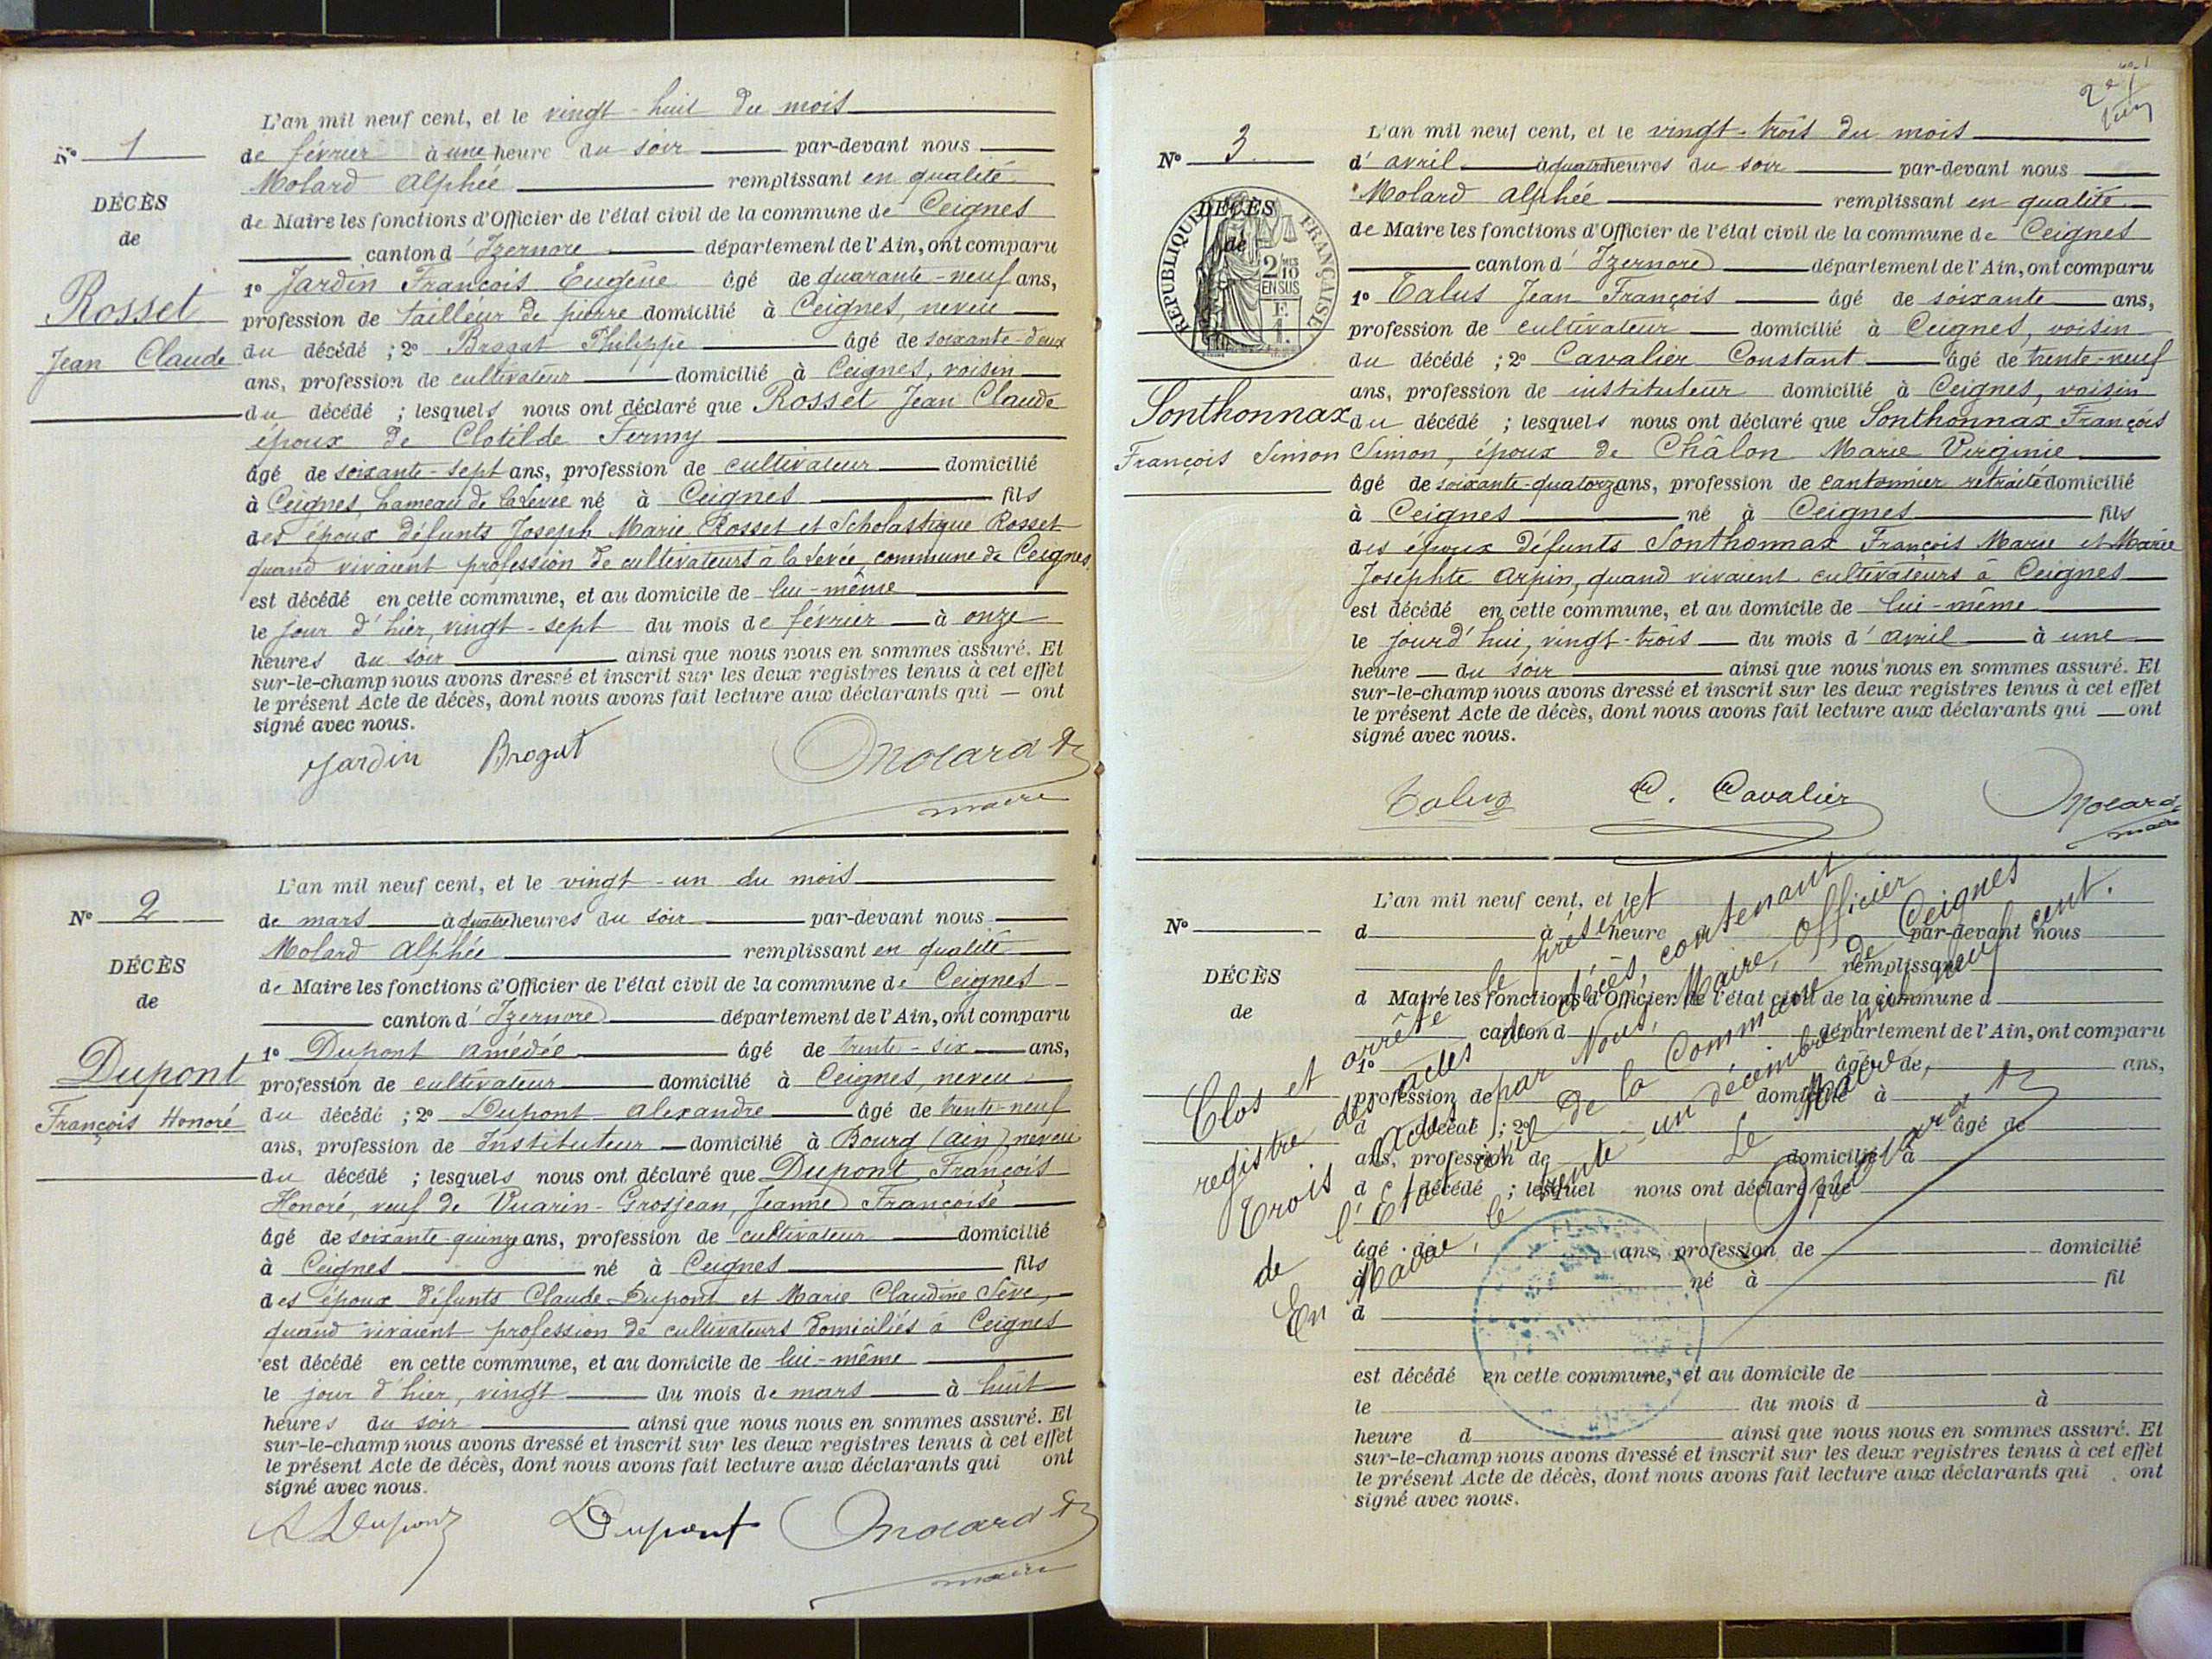 L'an mil neuf cent, et le vingt-huit du mois
N° 1
de février à une heure du soir par-devant nous
Molard Alphée remplissant en qualité
DÉCÈS
de Maire les fonctions d'Officier de l'état civil de la commune de Ceignes
de
canton d'Izernore département de l'Ain, ont comparu
1° Jardin François Eugène âgé de quarante-neuf ans,
Rosset
profession de tailleur de pierre domicilié à Ceignes, neveu
Jean Claude
du décédé ; 2° Brogat Philippe âgé de soixante-deux
ans, profession de cultivateur domicilié à Ceignes, voisin
du décédé ; lesquels nous ont déclaré que Rosset Jean Claude
époux de Clotilde Fermy
âgé de soixante-sept ans, profession de cultivateur domicilié
à Ceignes, hameau de la Levée né à Ceignes fils
des époux défunts Joseph Marie Rosset et Scholastique Rosset
quand vivaient profession de cultivateurs à la Levée, commune de Ceignes
est décédé en cette commune, et au domicile de lui-même
le jour d'hier, vingt-sept du mois de février à onze
heures du soir ainsi que nous nous en sommes assuré. Et
sur-le-champ nous avons dressé et inscrit sur les deux registres tenus à cet effet
le présent Acte de décès, dont nous avons fait lecture aux déclarants qui ont
signé avec nous.
Jardin Brogat Molard
maire
L'an mil neuf cent, et le vingt-un du mois
N° 2
de mars à quatre heures du soir par-devant nous
Molard Alphée remplissant en qualité
DÉCÈS
de Maire les fonctions d'Officier de l'état civil de la commune de Ceignes
de
canton d'Izernore département de l'Ain, ont comparu
1° Dupont Amédée âgé de trente-six ans,
Dupont
profession de cultivateur domicilié à Ceignes, neveu
François Honoré
du décédé ; 2° Dupont Alexandre âgé de trente-neuf
ans, profession de Instituteur domicilié à Bourg (Ain) neveu
du décédé ; lesquels nous ont déclaré que Dupont François
Honoré, veuf de Vuarin-Grosjean, Jeanne Françoise
âgé de soixante-quinze ans, profession de cultivateur domicilié
à Ceignes né à Ceignes fils
des époux défunts Claude Dupont et Marie Claudine Sève,
quand vivaient profession de cultivateurs domiciliés à Ceignes
est décédé en cette commune, et au domicile de lui-même
le jour d'hier, vingt du mois de mars à huit
heures du soir ainsi que nous nous en sommes assuré. Et
sur-le-champ nous avons dressé et inscrit sur les deux registres tenus à cet effet
le présent Acte de décès, dont nous avons fait lecture aux déclarants qui ont
signé avec nous.
A Dupont Dupont Molard
maire
L'an mil neuf cent, et le vingt-trois du mois
N° 3
d'avril à quatre heures du soir par-devant nous
Molard Alphée remplissant en qualité
DÉCÈS
de
RÉPUBLIQUE FRANÇAISE
2 10
EN SUS
F.
1.
de Maire les fonctions d'Officier de l'état civil de la commune de Ceignes
canton d'Izernore département de l'Ain, ont comparu
1° Talus Jean François âgé de soixante ans,
profession de cultivateur domicilié à Ceignes, voisin
du décédé ; 2° Cavalier Constant âgé de trente-neuf
ans, profession de instituteur domicilié à Ceignes, voisin
Sonthonnax
du décédé ; lesquels nous ont déclaré que Sonthonnax François
François Simon
Simon, époux de Châlon Marie Virginie
âgé de soixante-quatorze ans, profession de cantonnier retraité domicilié
à Ceignes né à Ceignes fils
des époux défunts Sonthonnax François Marie et Marie
Josephte Arpin, quand vivaient cultivateurs à Ceignes
est décédé en cette commune, et au domicile de lui-même
le jourd'hui, vingt-trois du mois d'avril à une
heure du soir ainsi que nous nous en sommes assuré. Et
sur-le-champ nous avons dressé et inscrit sur les deux registres tenus à cet effet
le présent Acte de décès, dont nous avons fait lecture aux déclarants qui ont
signé avec nous.
Talus C. Cavalier Molard
maire
L'an mil neuf cent, et le
N°
d à heure par-devant nous
remplissant
DÉCÈS
de
d Maire les fonctions d'Officier de l'état civil de la commune d
canton d département de l'Ain, ont comparu
1° âgé de ans,
profession de domicilié à
d décédé ; 2° âgé de
ans, profession de domicilié à
d décédé ; lesquel nous ont déclaré que
âgé de ans, profession de domicilié
à né à fil
d
est décédé en cette commune, et au domicile de
le du mois d à
heure d ainsi que nous nous en sommes assuré. Et
sur-le-champ nous avons dressé et inscrit sur les deux registres tenus à cet effet
le présent Acte de décès, dont nous avons fait lecture aux déclarants qui ont
signé avec nous.
Clos et arrêté le présent
registre des actes de décès, contenant
trois actes, par Nous, Maire, Officier
de l'Etat civil de la Commune de Ceignes
En Mairie, le trente-un décembre mil neuf cent.
Le Maire,
Molard